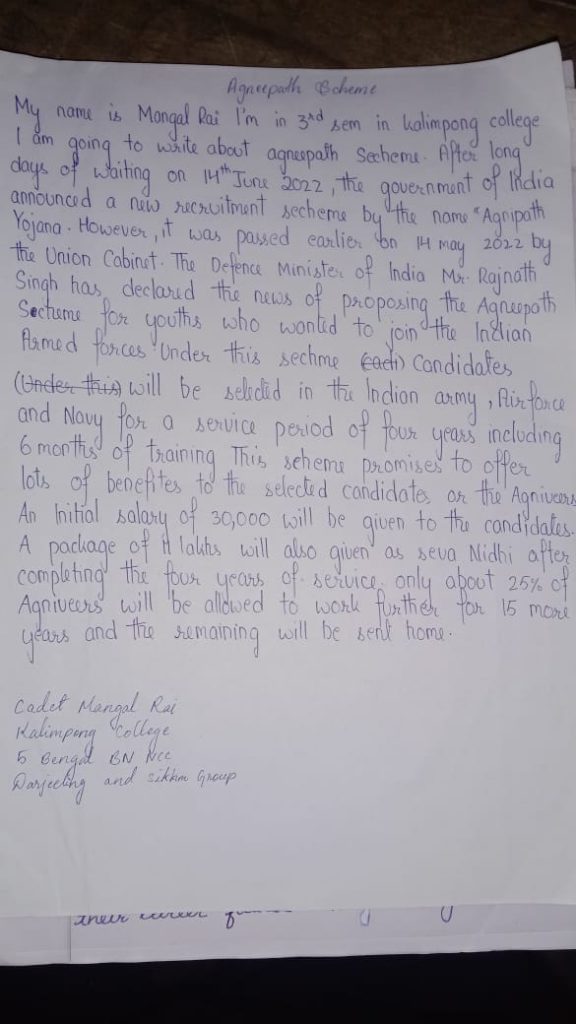 Agneepath Scheme
My name is Mangal Rai I'm in 3rd sem in kalimpong college
I am going to write about agneepath Secheme. After long
days of waiting on 14th June 2022, the government of India
announced a new recruitment secheme by the name "Agnipath
Yojana. However, it was passed earlier on 14 may 2022 by
the Union Cabinet. The Defence Minister of India Mr. Rajnath
Singh has declared the news of proposing the Agneepath
Secheme for youths who wanted to join the Indian
Armed forces. Under this sechme (each) Candidates
(Under this) will be selected in the Indian army, Air force
and Navy for a service period of four years including
6 months of training This scheme promises to offer
lots of benefites to the selected candidates or the Agniveers
An Initial salary of 30,000 will be given to the candidates.
A package of 11 lakhs will also given as seva Nidhi after
completing the four years of service. only about 25% of
Agniveers will be allowed to work further for 15 more
years and the remaining will be sent home.
Cadet Mangal Rai
Kalimpong College
5 Bengal BN NCC
Darjeeling and sikkim Group
their career